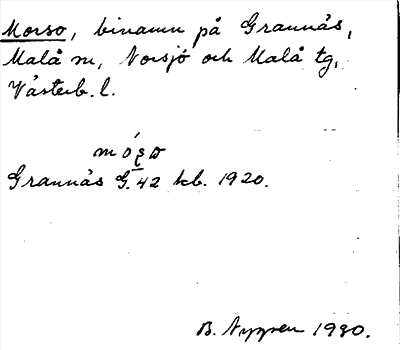 Morso, binamn på Grannäs,
Malå sn, Norsjö och Malå tg,
Västerb. l.
Grannäs G. 42 kb. 1920.
B. Nygren 1980.